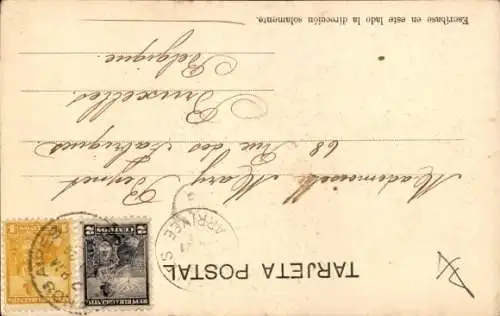 TARJETA POSTAL
Mademoiselle Mary Peynet
68 Rue des Fabriques
Bruxelles
Belgique.
Escríbase en este lado la dirección solamente.
2
CENTAVOS
REPUBLICA ARGENTINA
1
ARRIVÉE